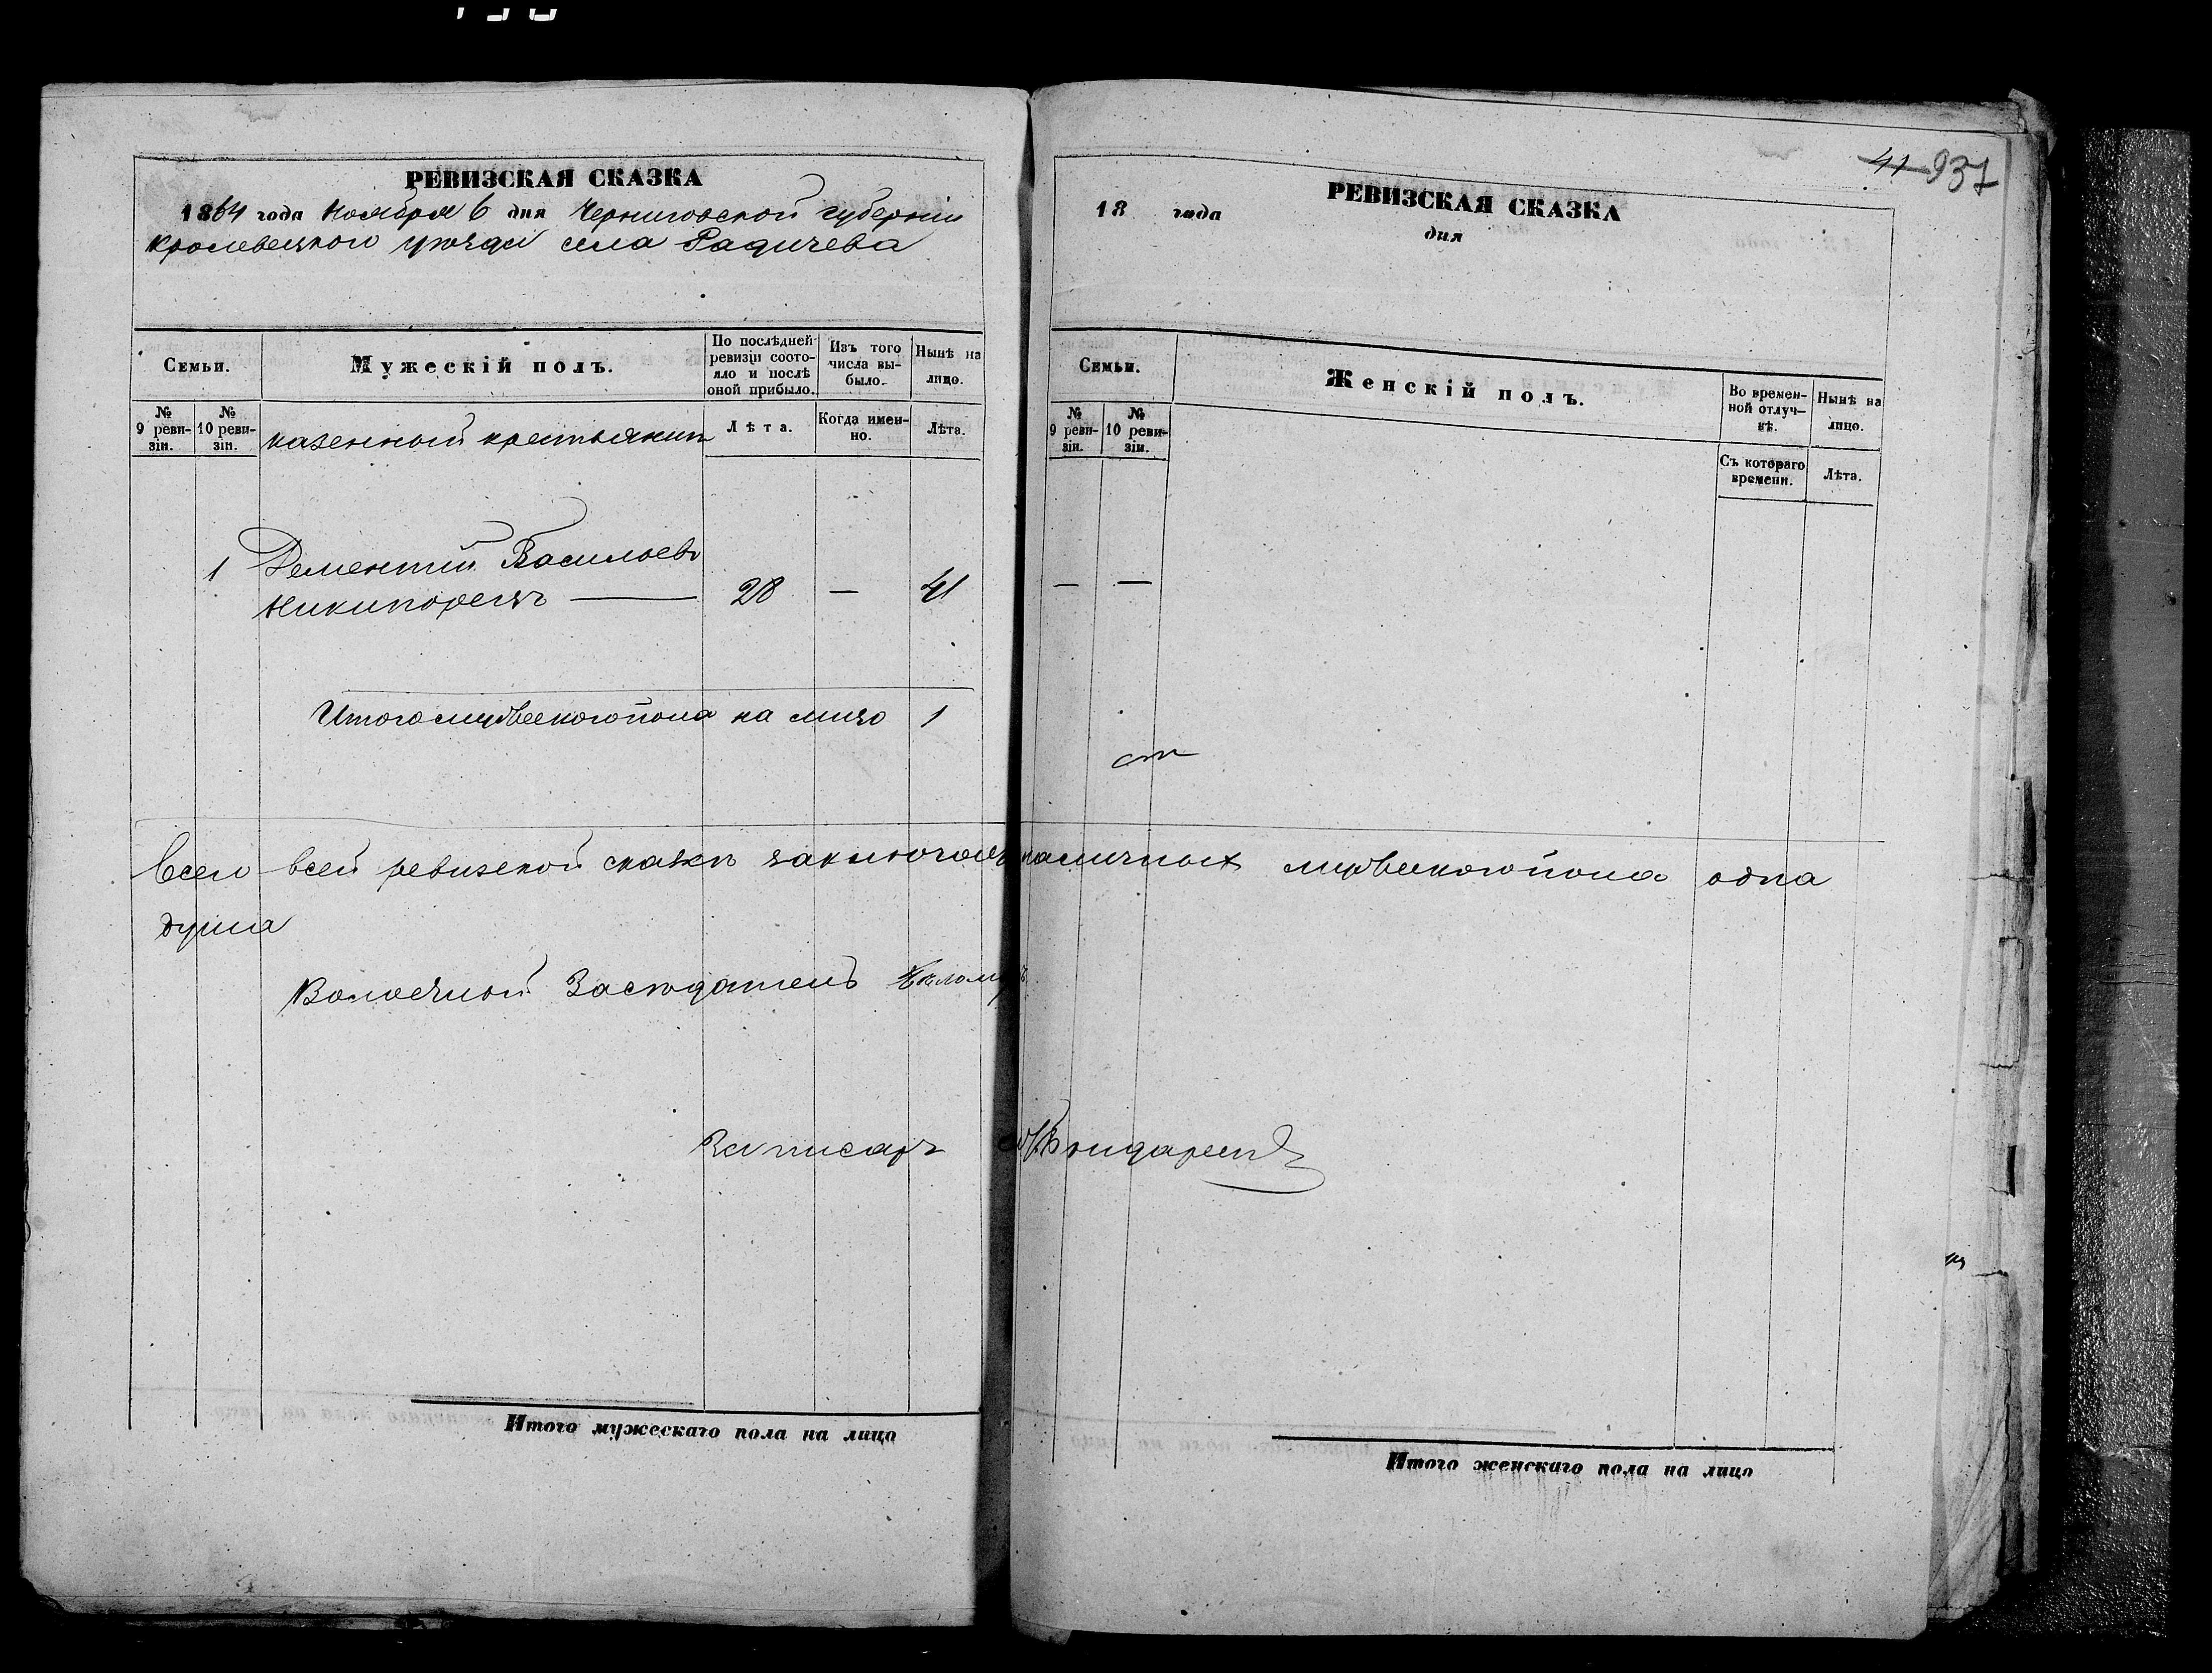 РЕВИЗСКАЯ СКАЗКА
1864 года Ноября 6 дня Черниговской губерніи
Кролевецкого уѣзда села Радичева
Семьи.
Мужескій полъ.
По послѣдней ревизіи состояло и послѣ оной прибыло.
Изъ того числа выбыло.
Нынѣ на лицо.
№ 9 ревизіи.
№ 10 ревизіи.
казенный крестьянинъ
Лѣта.
Когда именно.
Лѣта.
1 Дементій Васильевъ
Никипорецъ — 28 — 41
Итого мужескогопола на лицо 1
Всего всей ревизской сказкѣ наличныхъ мужескогопола одна
душа
Волостной Засѣдатель
писарь Бондарен
Итого мужескаго пола на лицо
41 937
РЕВИЗСКАЯ СКАЗКА
18 года
дня
Семьи.
Женскій полъ.
Во временной отлучкѣ.
Нынѣ на лицо.
№ 9 ревизіи.
№ 10 ревизіи.
Съ котораго времени.
Лѣта.
— —
Итого женскаго пола на лицо